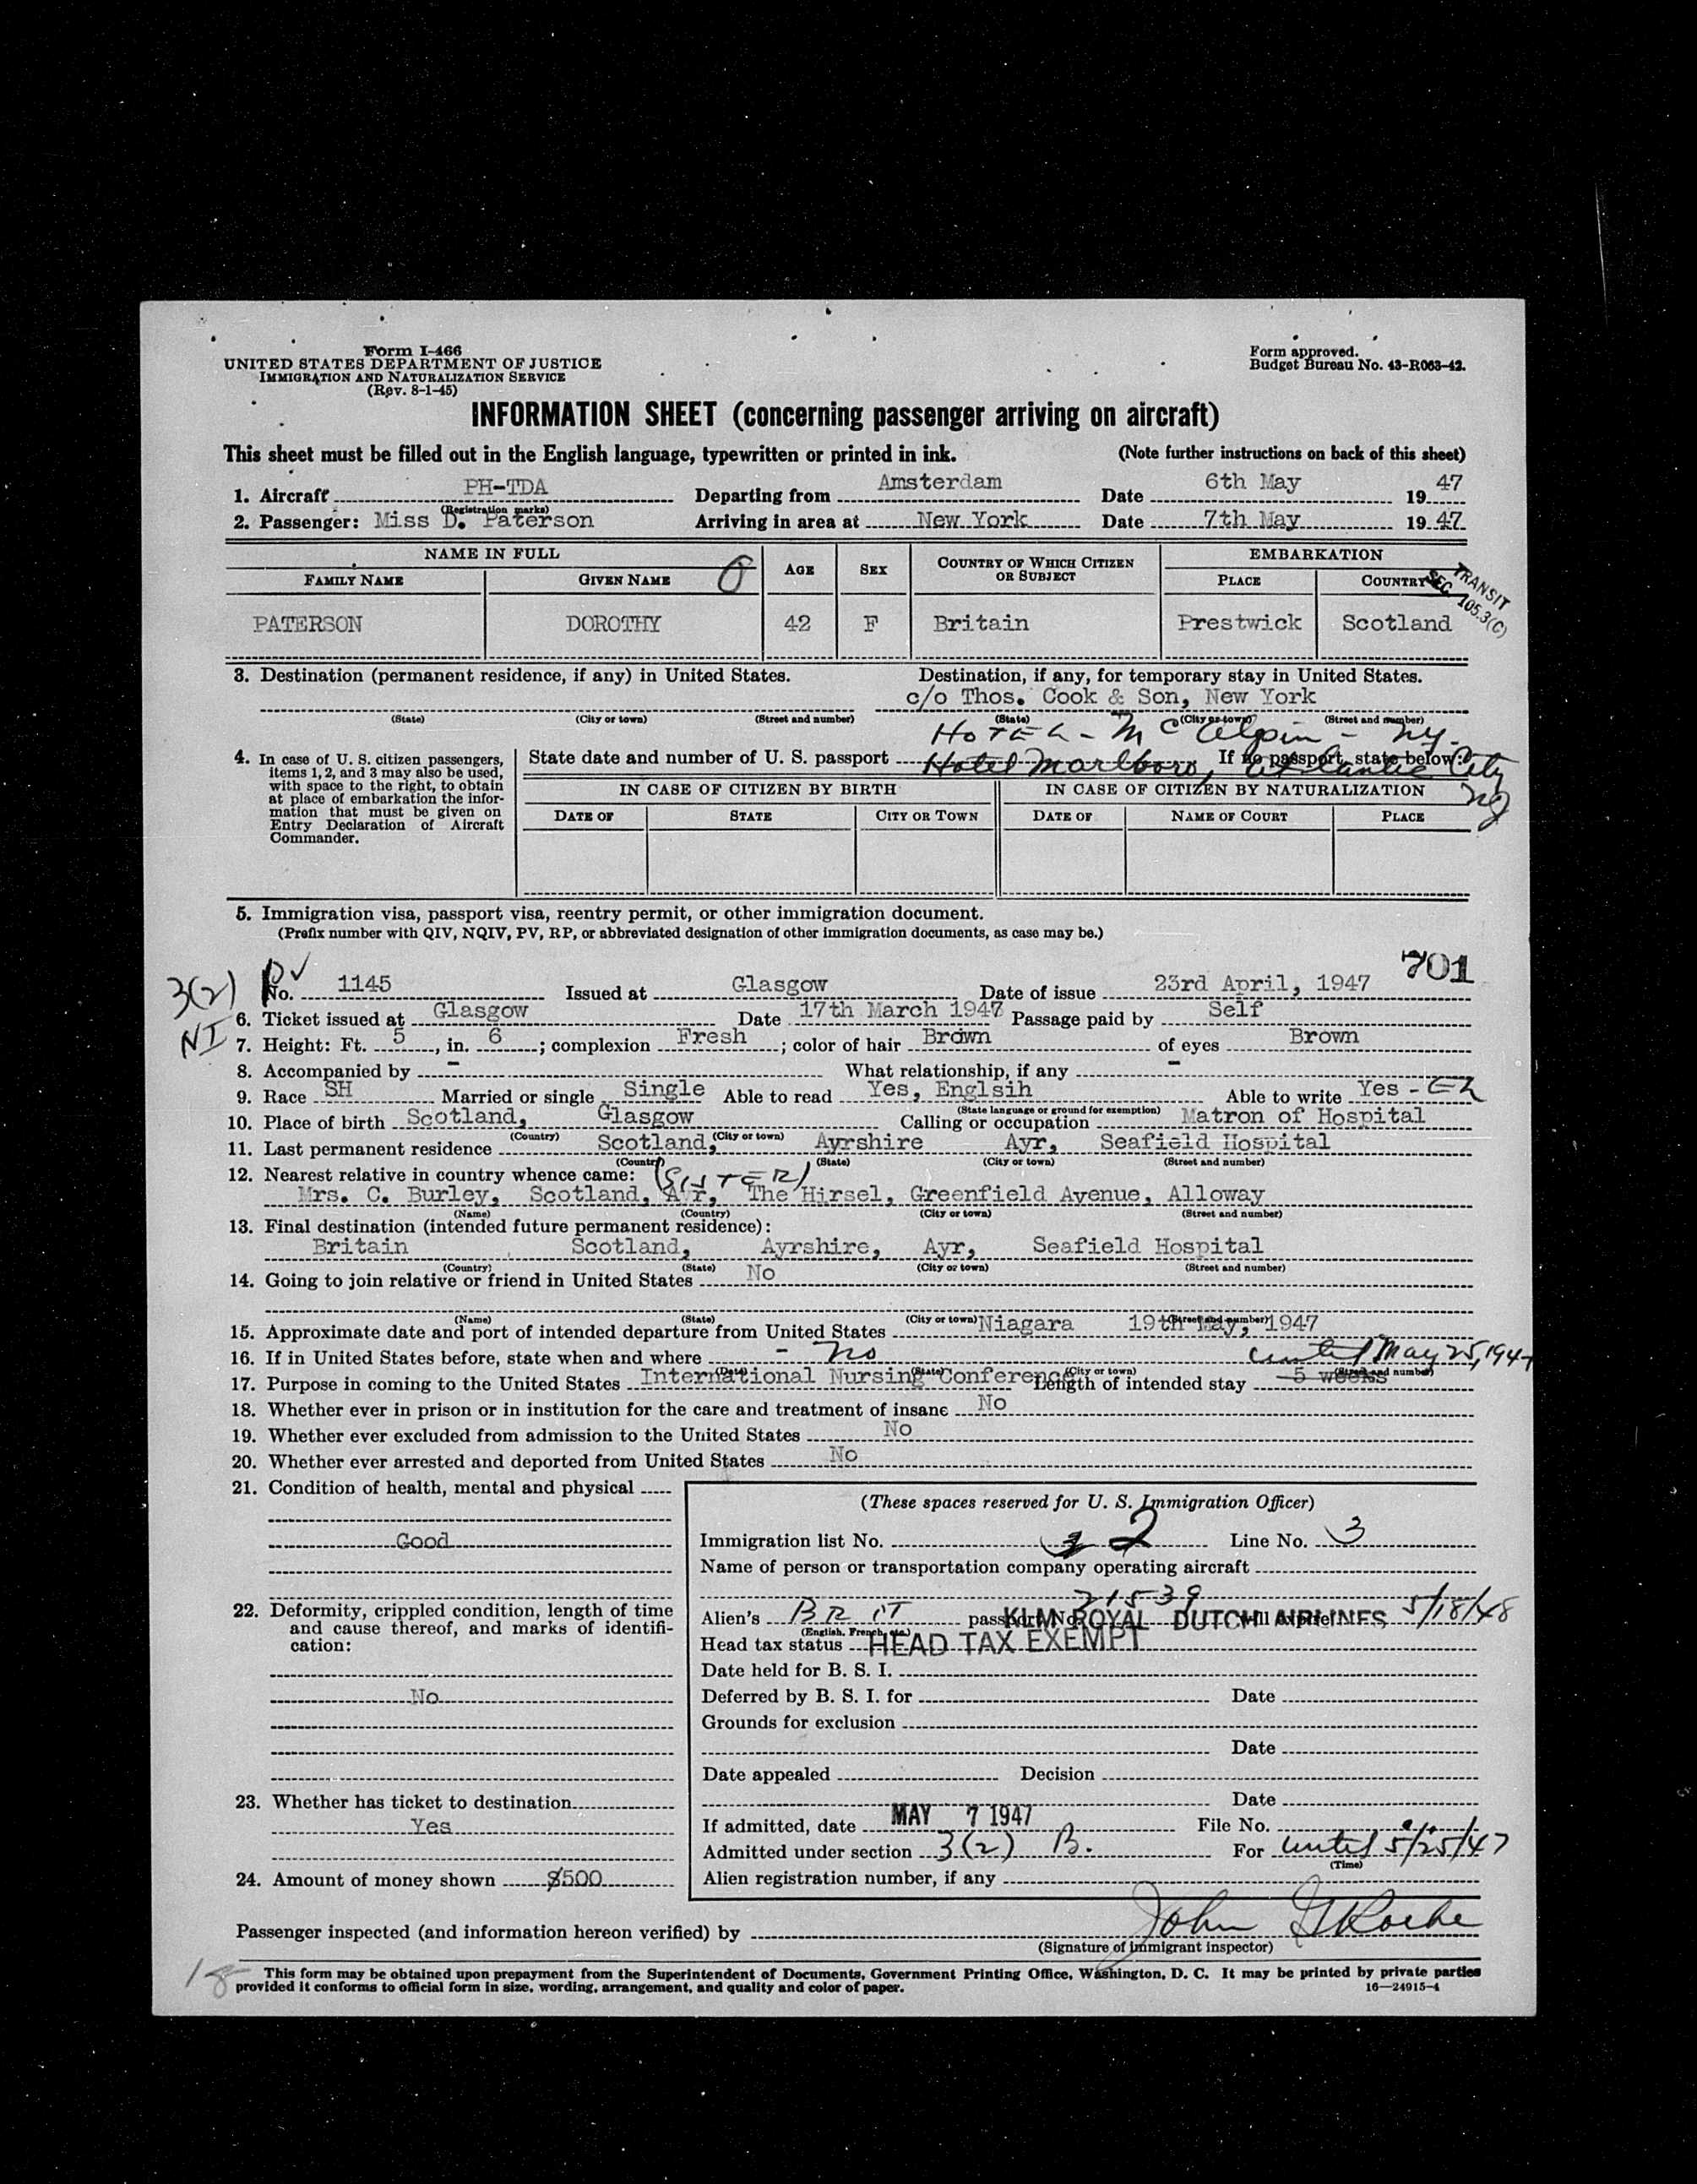 Form I-466
UNITED STATES DEPARTMENT OF JUSTICE
IMMIGRATION AND NATURALIZATION SERVICE
(Rev. 8-1-45)
Form approved.
Budget Bureau No. 43-R063-42.
INFORMATION SHEET (concerning passenger arriving on aircraft)
This sheet must be filled out in the English language, typewritten or printed in ink. (Note further instructions on back of this sheet)
1. Aircraft PH-TDA Departing from Amsterdam Date 6th May 1947
(Registration marks)
2. Passenger: Miss D. Paterson Arriving in area at New York Date 7th May 1947
NAME IN FULL AGE SEX COUNTRY OF WHICH CITIZEN OR SUBJECT EMBARKATION
FAMILY NAME GIVEN NAME PLACE COUNTRY
TRANSIT
SEC 105.3(C)
PATERSON DOROTHY 42 F Britain Prestwick Scotland
3. Destination (permanent residence, if any) in United States. Destination, if any, for temporary stay in United States.
c/o Thos. Cook & Son, New York
(State) (City or town) (Street and number) (State) (City or town) (Street and number)
HOTEL - McAlpin - NY.
4. In case of U. S. citizen passengers, items 1, 2, and 3 may also be used, with space to the right, to obtain at place of embarkation the information that must be given on Entry Declaration of Aircraft Commander.
State date and number of U. S. passport If no passport, state below:
Hotel Marlboro, Atlantic City NJ
IN CASE OF CITIZEN BY BIRTH IN CASE OF CITIZEN BY NATURALIZATION
DATE OF STATE CITY OR TOWN DATE OF NAME OF COURT PLACE
5. Immigration visa, passport visa, reentry permit, or other immigration document.
(Prefix number with QIV, NQIV, PV, RP, or abbreviated designation of other immigration documents, as case may be.)
701
3(2) PV
No. 1145 Issued at Glasgow Date of issue 23rd April, 1947
NI
6. Ticket issued at Glasgow Date 17th March 1947 Passage paid by Self
7. Height: Ft. 5, in. 6; complexion Fresh; color of hair Brown of eyes Brown
8. Accompanied by - What relationship, if any -
9. Race SH Married or single Single Able to read Yes, Englsih Able to write Yes - En
(State language or ground for exemption)
10. Place of birth Scotland, Glasgow Calling or occupation Matron of Hospital
(Country) (City or town)
11. Last permanent residence Scotland, Ayrshire Ayr, Seafield Hospital
(Country) (State) (City or town) (Street and number)
12. Nearest relative in country whence came: (SISTER)
Mrs. C. Burley, Scotland, Ayr, The Hirsel, Greenfield Avenue, Alloway
(Name) (Country) (City or town) (Street and number)
13. Final destination (intended future permanent residence):
Britain Scotland, Ayrshire, Ayr, Seafield Hospital
(Country) (State) (City or town) (Street and number)
14. Going to join relative or friend in United States No
(Name) (State) (City or town) (Street and number)
15. Approximate date and port of intended departure from United States Niagara 19th May, 1947
16. If in United States before, state when and where - No until May 25, 1947
(Date) (State) (City or town) (Street and number)
17. Purpose in coming to the United States International Nursing Conference Length of intended stay 5 weeks
18. Whether ever in prison or in institution for the care and treatment of insane No
19. Whether ever excluded from admission to the United States No
20. Whether ever arrested and deported from United States No
21. Condition of health, mental and physical
Good
22. Deformity, crippled condition, length of time and cause thereof, and marks of identification:
No
23. Whether has ticket to destination
Yes
24. Amount of money shown $500
(These spaces reserved for U. S. Immigration Officer)
Immigration list No. 2 Line No. 3
Name of person or transportation company operating aircraft
KLM ROYAL DUTCH AIRLINES
Alien's BRIT passport No. 21539 will expire 5/18/48
(English, French, etc.)
Head tax status HEAD TAX EXEMPT
Date held for B. S. I.
Deferred by B. S. I. for Date
Grounds for exclusion
Date
Date appealed Decision
Date
If admitted, date MAY 7 1947 File No.
Admitted under section 3(2) B. For until 5/25/47
(Time)
Alien registration number, if any
Passenger inspected (and information hereon verified) by John G Roche
(Signature of immigrant inspector)
18
This form may be obtained upon prepayment from the Superintendent of Documents, Government Printing Office, Washington, D. C. It may be printed by private parties
provided it conforms to official form in size, wording, arrangement, and quality and color of paper. 16—24915-4